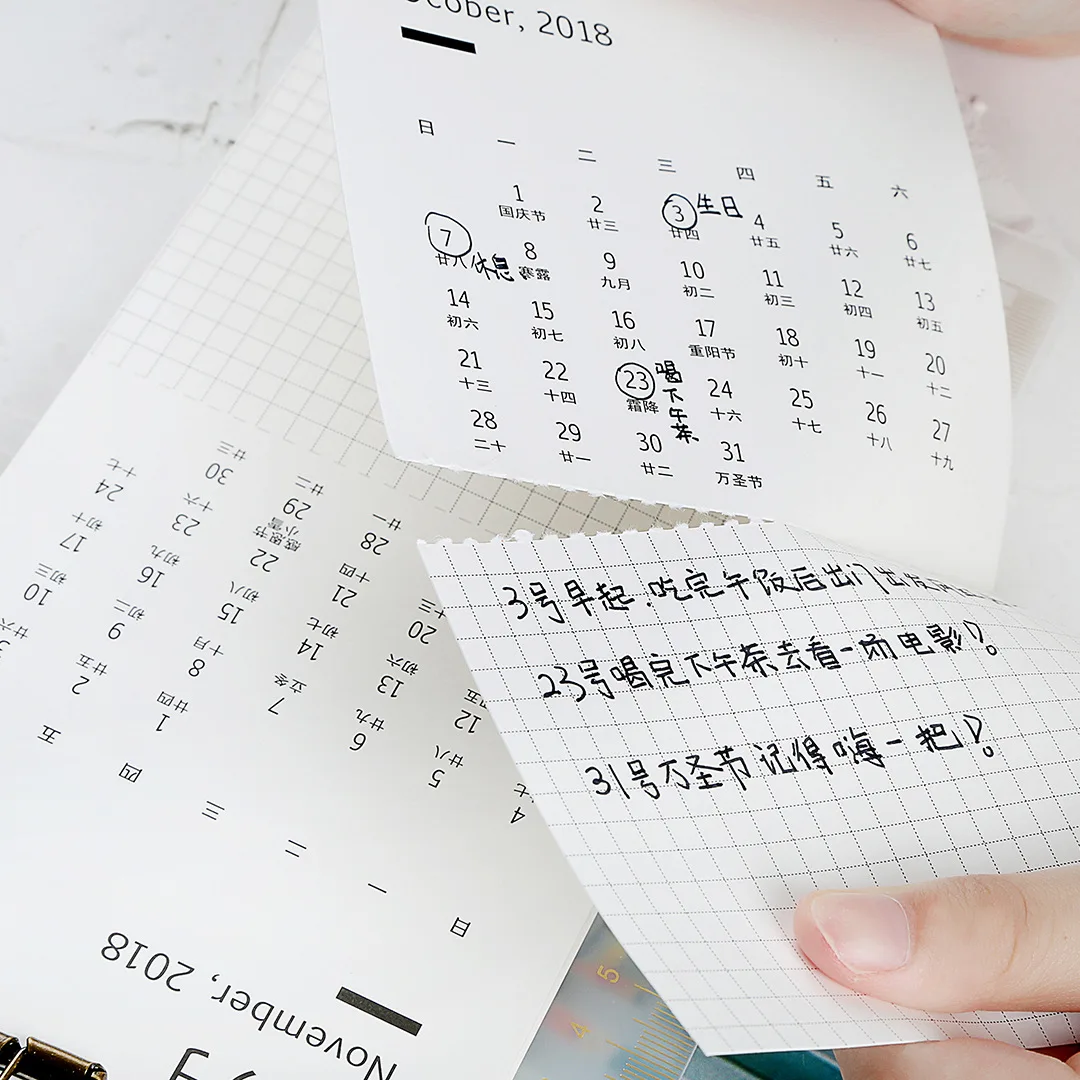 ctober, 2018
日 一 二 三 四 五 六
1 2 3 生日 4 5 6
国庆节 廿三 廿四 廿五 廿六 廿七
7 8 9 10 11 12 13
廿八 休息 寒露 九月 初二 初三 初四 初五
14 15 16 17 18 19 20
初六 初七 初八 重阳节 初十 十一 十二
21 22 23 喝下午茶 24 25 26 27
十三 十四 霜降 十六 十七 十八 十九
28 29 30 31
二十 廿一 廿二 万圣节
3号早起.吃完午饭后出门出发
23号喝完下午茶去看一场电影!
31号万圣节记得嗨一把!
November, 2018
日 一 二 三 四 五
1 2
廿四 廿五 廿六
4 5 6 7 8 9 10
七 廿八 廿九 立冬 十月 初二 初三
12 13 14 15 16 17
五 初六 初七 初八 初九 初十
20 21 22 23 24
十三 十四 小雪 感恩节 十六 十七
28 29 30
廿一 廿二 廿三
5
4